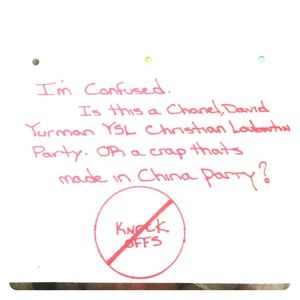 I'm Confused.
Is this a Chanel, David
Yurman YSL Christian Louboutin
Party. OR a crap thats
made in China party?
KNOCK
OFFS